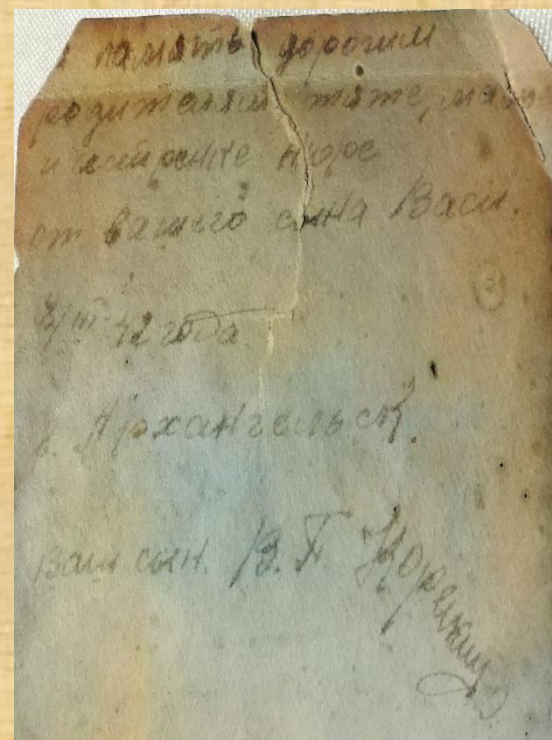 память дорогим
родителям тяте, маме
и сестренке Нюре
от вашего сына Васи.
/III 42 года
г. Архангельск.
Ваш сын. В. П.